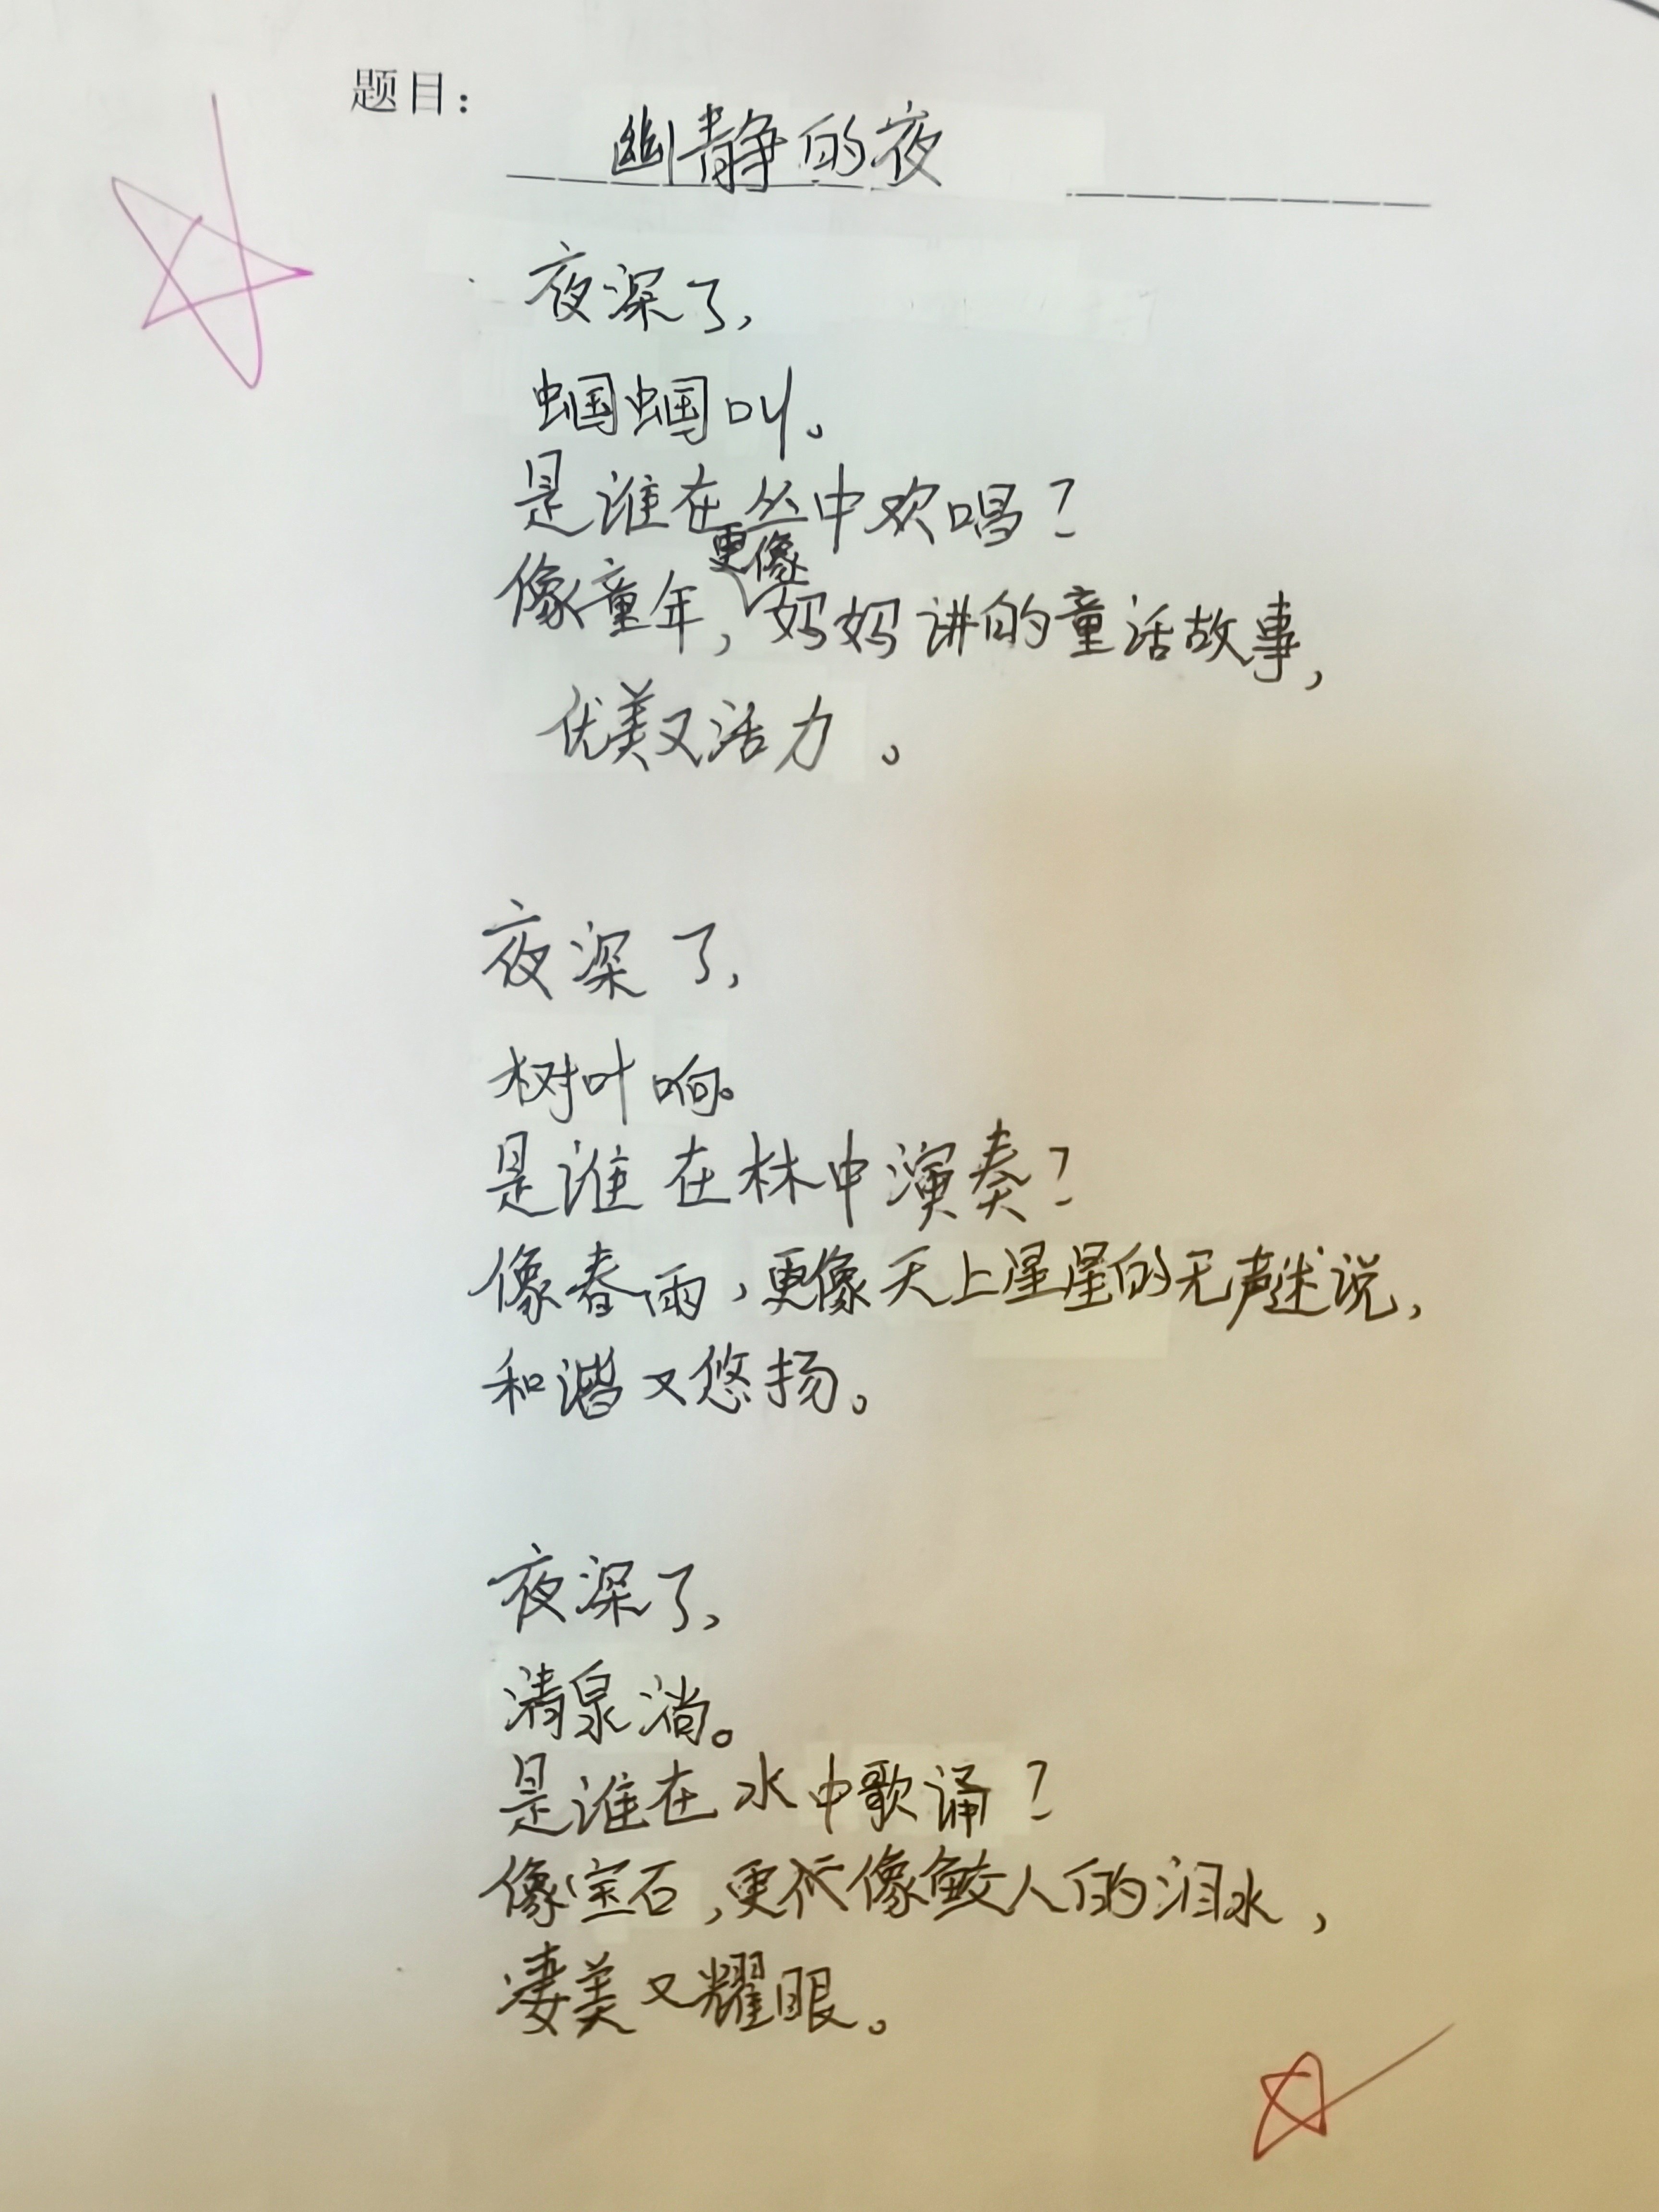 题目：
幽静的夜
夜深了，
蝈蝈叫。
是谁在丛中欢唱？
像童年，更像妈妈讲的童话故事，
优美又活力。
夜深了，
树叶响。
是谁在林中演奏？
像春雨，更像天上星星的无声述说，
和谐又悠扬。
夜深了，
清泉淌。
是谁在水中歌诵？
像宝石，更像鲛人的泪水，
凄美又耀眼。